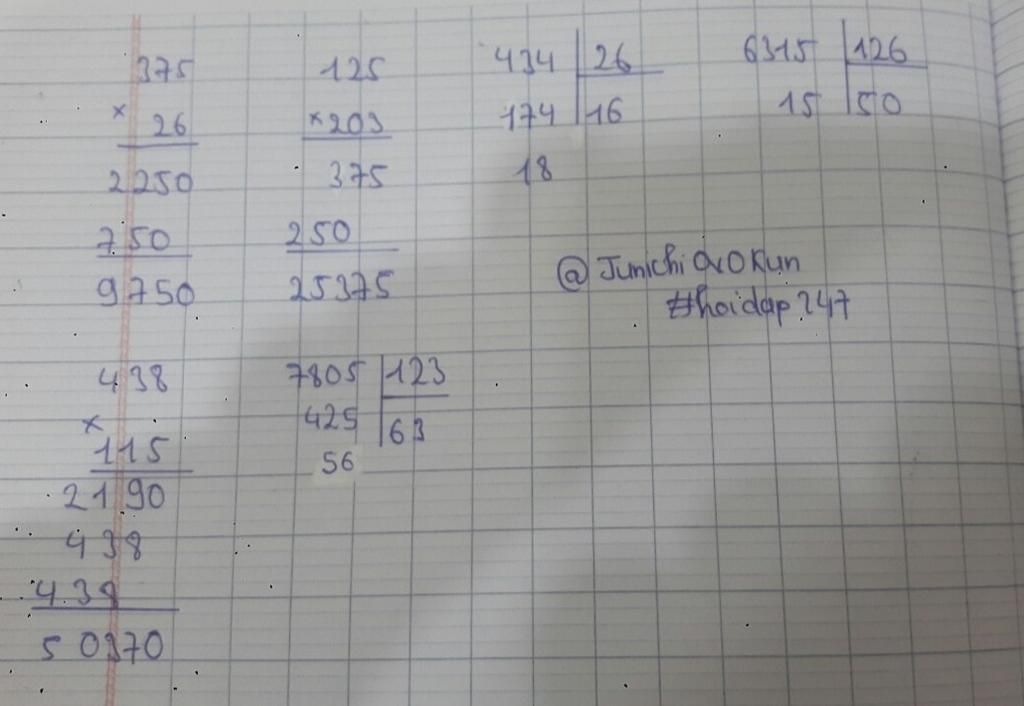 375
× 26
2250
750
9750
125
×203
375
250
25375
434 | 26
174 | 16
18
6315 | 126
15 | 50
@JunichiOxOKun
#hoidap247
438
×
115
2190
438
438
50370
7805 | 123
425 | 63
56